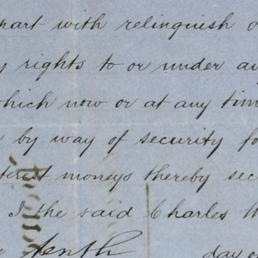 part with relinquish
rights to or under
which now or at any
by way of security
moneys thereby
I the said Charles
tenth day